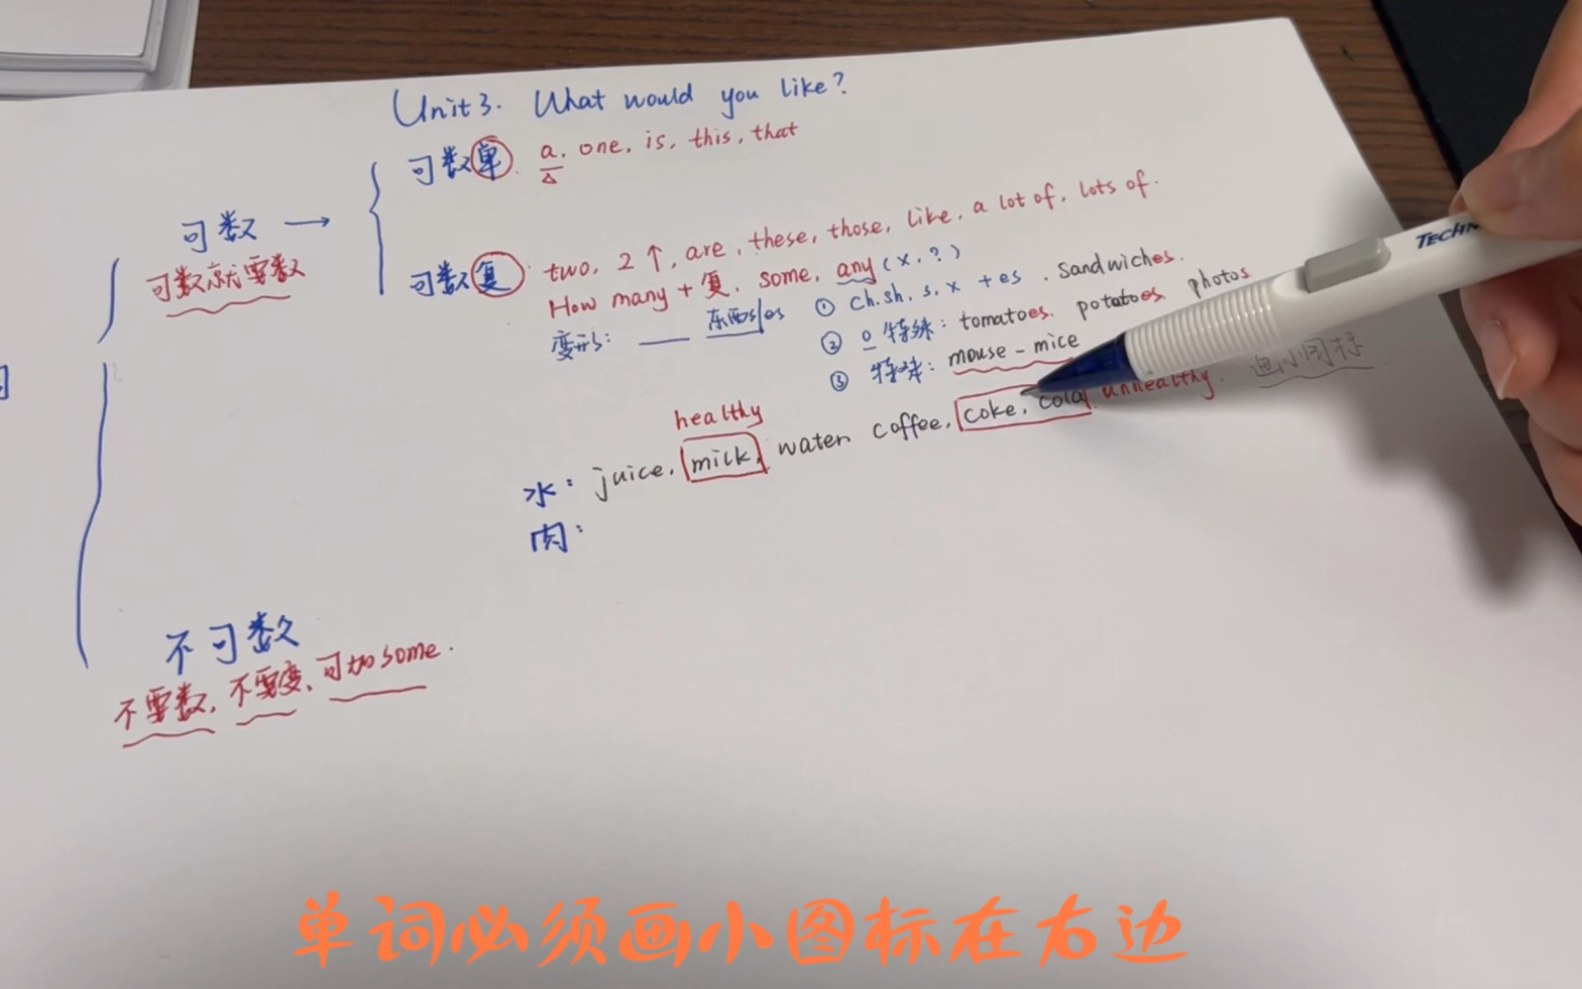 Unit 3. What would you like?
可数单. a, one, is, this, that
可数 →
可数就要数
可数复 two, 2↑, are, these, those, like, a lot of, lots of.
How many + 复, some, any (x, ?)
变形: ___ 东西s/es
① ch. sh. s. x + es. sandwiches.
② o 特殊: tomatoes. potatoes photos
③ 特殊: mouse - mice
画小图标
healthy
水: juice, milk, water coffee, coke, cola unhealthy.
肉:
不可数
不要数, 不要变, 可加some.
TECHN
单词必须画小图标在右边